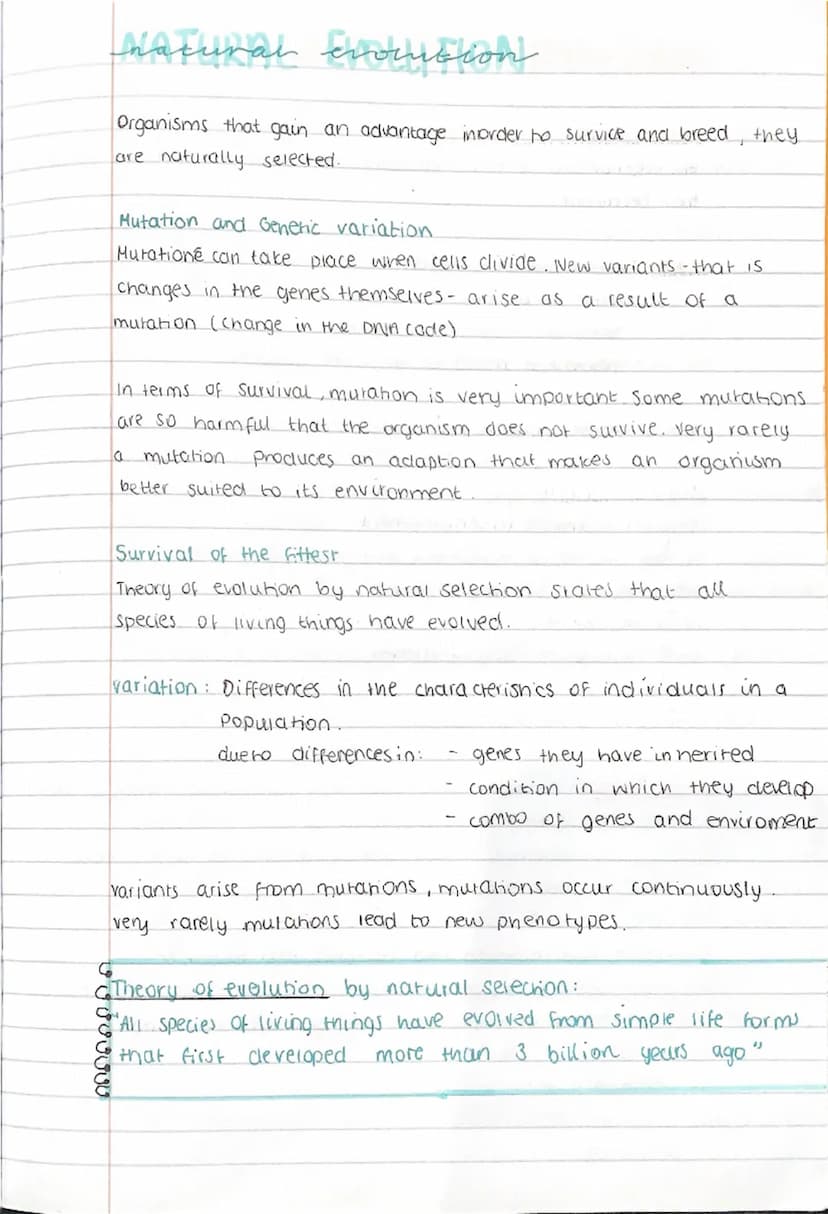 NATURAL EVOLUTION
natural evolution
Organisms that gain an advantage inorder to survice and breed, they
are naturally selected.
Mutation and Genetic variation
Mutations can take place when cells divide. New variants - that is
changes in the genes themselves - arise as a result of a
mutation (change in the DNA code)
In terms of survival, mutation is very important some mutations
are so harmful that the organism does not survive. very rarely
a mutation produces an adaption that makes an organism
better suited to its environment.
Survival of the fittest
Theory of evolution by natural selection states that all
species of living things have evolved.
variation: Differences in the characteristics of individuals in a
population.
due to differences in: - genes they have inherited
- condition in which they develop
- combo of genes and enviroment
variants arise from mutations, mutations occur continuously.
very rarely mutations lead to new phenotypes.
Theory of evolution by natural selection:
"All species of living things have evolved from simple life forms
that first developed more than 3 billion years ago"